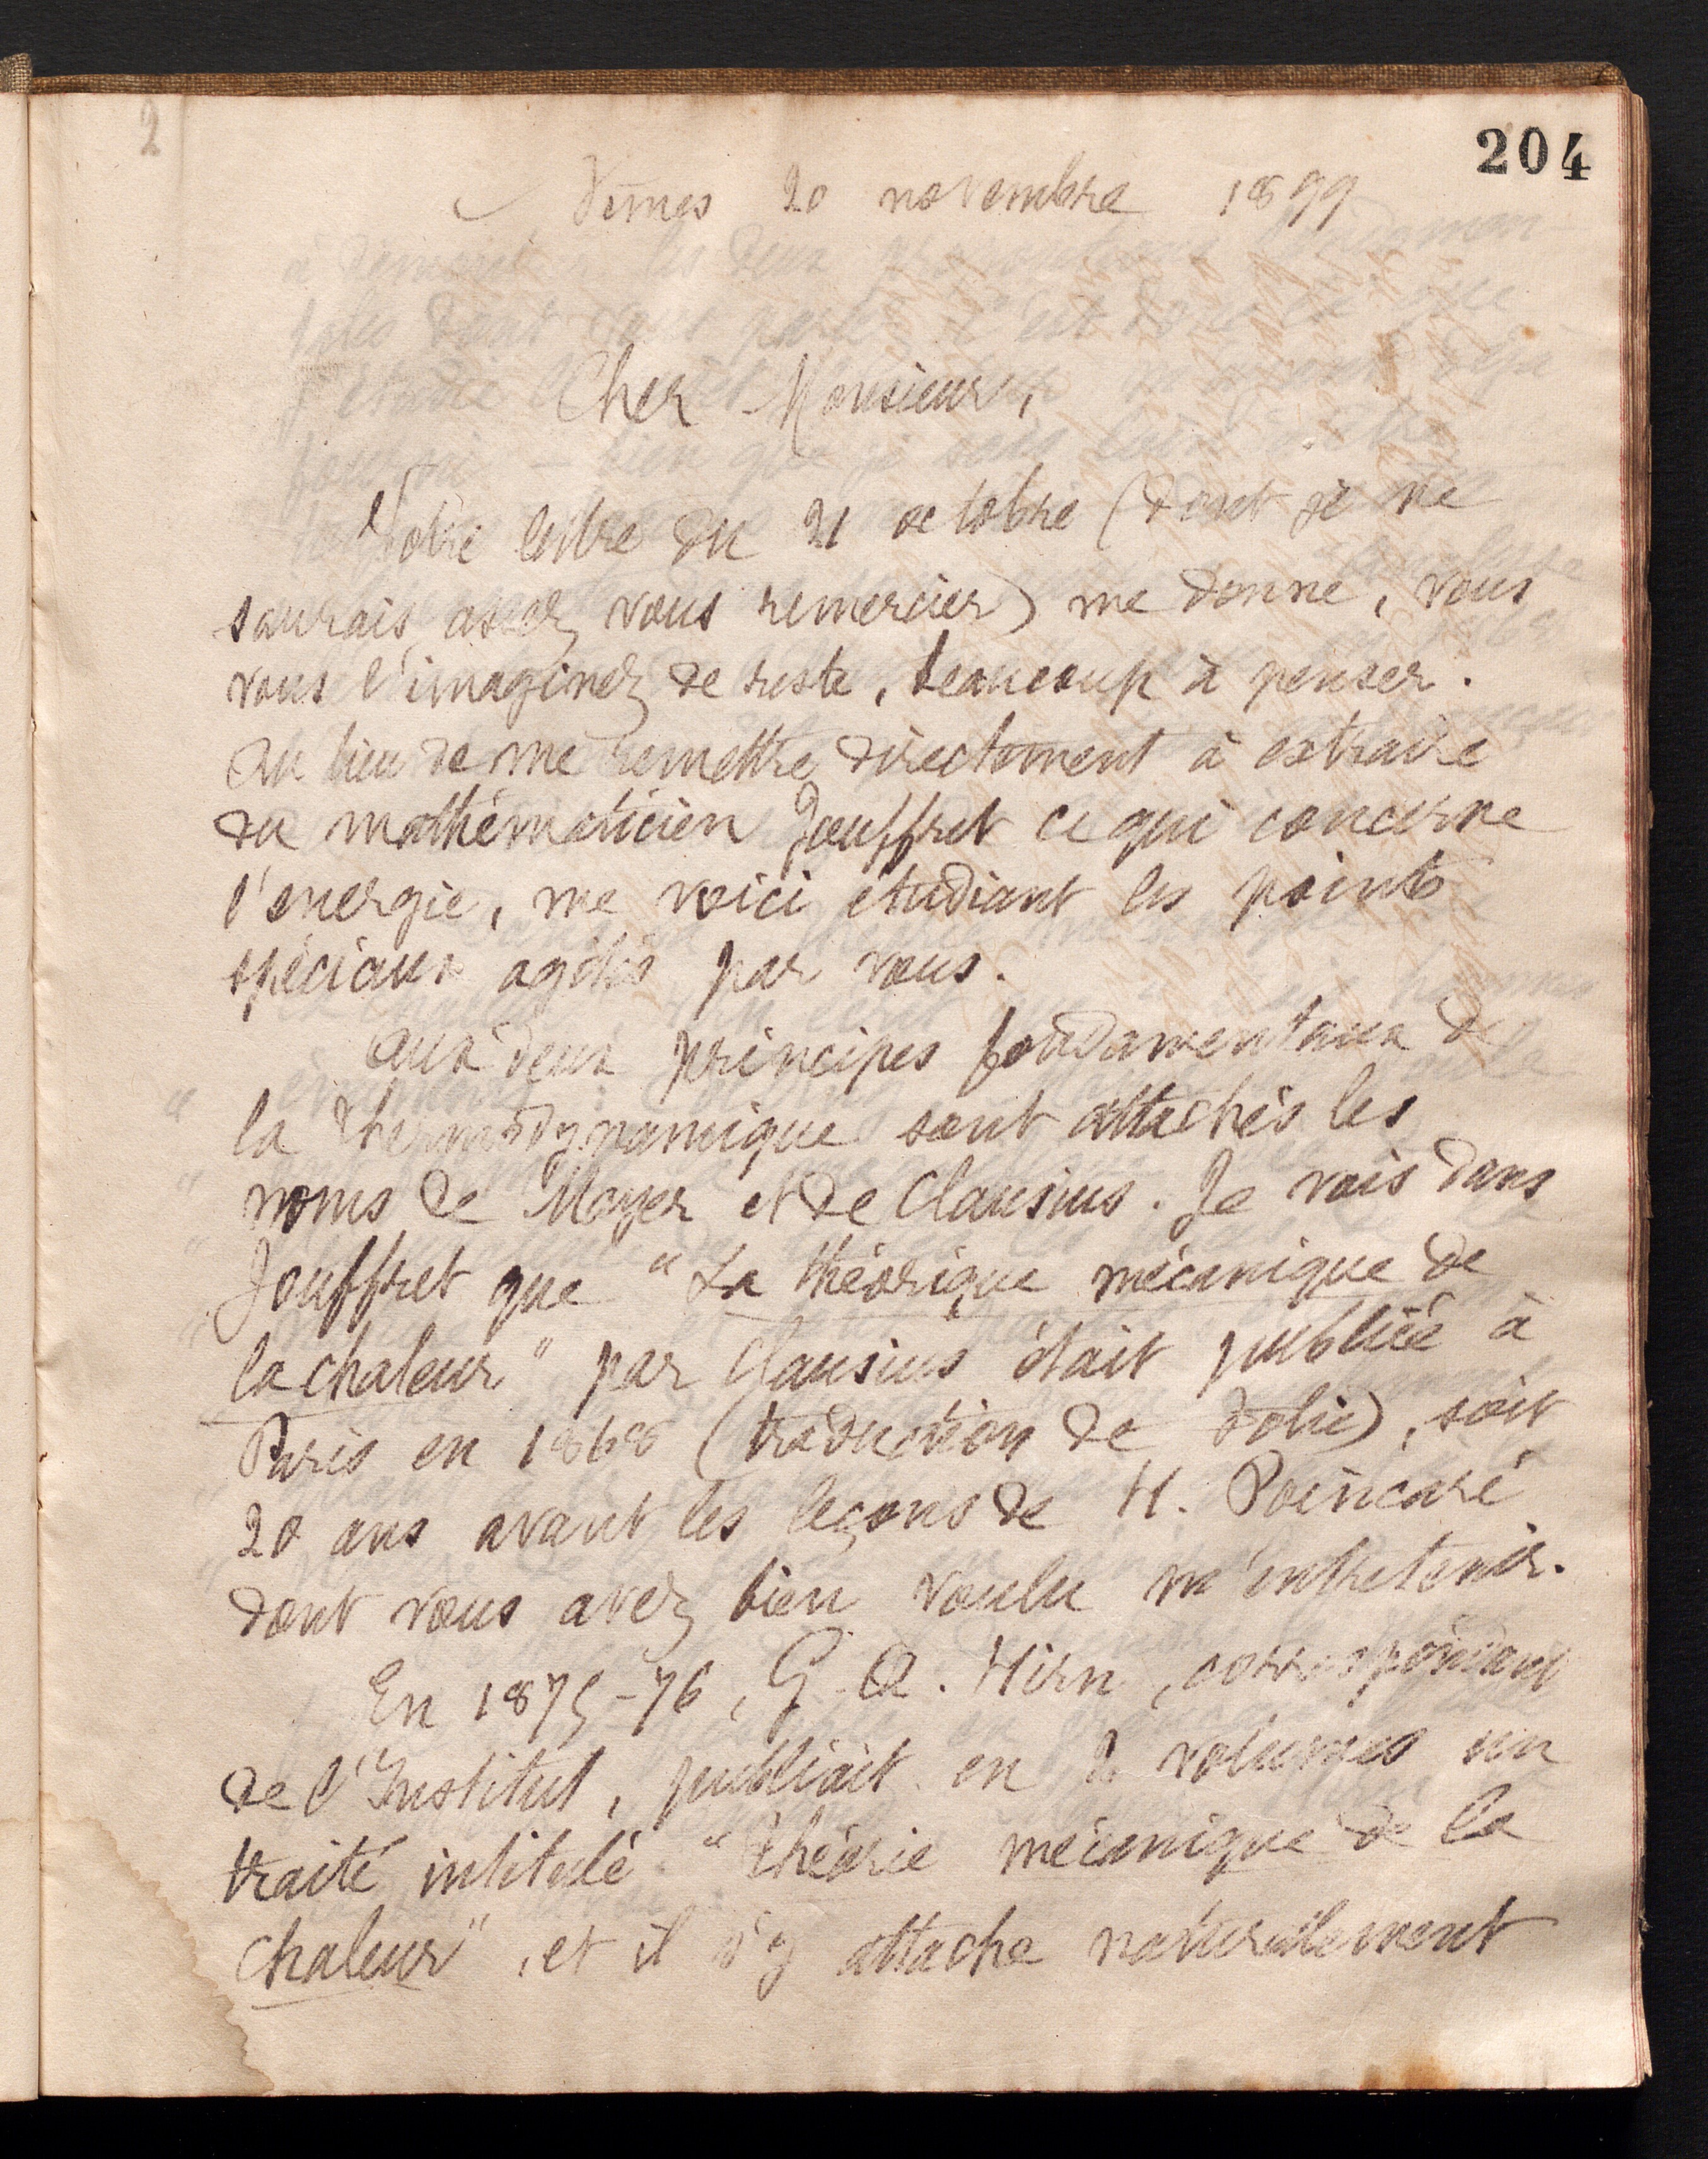 204
2
Nimes 20 novembre 1899
Cher Monsieur,
Votre lettre du 21 octobre (dont je ne
saurais assez vous remercier) me donne, vous
vous l'imaginez de reste, beaucoup à penser.
Au lieu de me remettre directement à extraire
du mathématicien Jouffret ce qui concerne
l'energie, me voici étudiant les points
spéciaux agités par vous.
Aux deux principes fondamentaux de
la thermodynamique sont attachés les
noms de Mayer et de Clausius. Je vois dans
Jouffret que "La théorique mécanique de
la chaleur" par Clausius était publiée à
Paris en 1868 (traduction de Folie), soit
20 ans avant les leçons de H. Poincaré
dont vous avez bien voulu m'entretenir.
En 1875-76, G. A. Hirn, correspondant
de l'Institut, publiait en 2 volumes un
traité intitulé "Théorie mécanique de la
chaleur", et il s'y attache naturellement